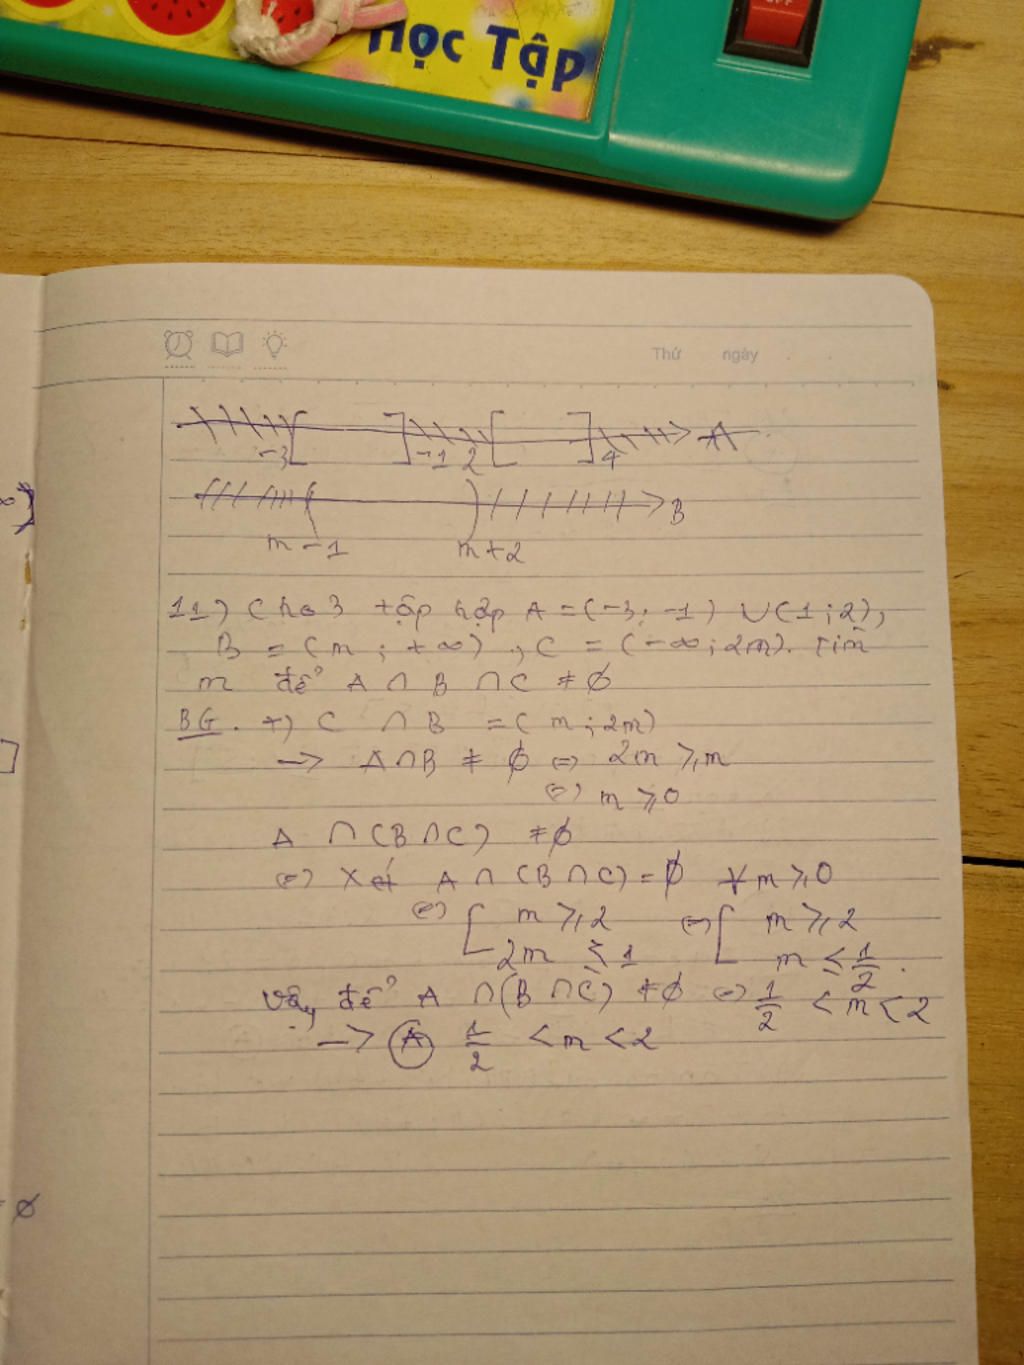 OFF
Học Tập
Thứ ngày
-3 -1 2 4 A
B
m-1 m+2
11) Cho 3 tập hợp A = (-3; -1) ∪ (1; 2),
B = (m; +∞), C = (-∞; 2m). Tìm
m để A ∩ B ∩ C ≠ ∅
BG. +) C ∩ B = (m; 2m)
→ A ∩ B ≠ ∅ ⇔ 2m ⩾ m
⇔ m ⩾ 0
A ∩ (B ∩ C) ≠ ∅
⇔ Xét A ∩ (B ∩ C) = ∅ ∀ m ⩾ 0
⇔ [ m ⩾ 2 ⇔ [ m ⩾ 2
2m ≤ 1 m ≤ 1/2.
Vậy để A ∩ (B ∩ C) ≠ ∅ ⇔ 1/2 < m < 2
→ A 1/2 < m < 2
∞)
= ∅